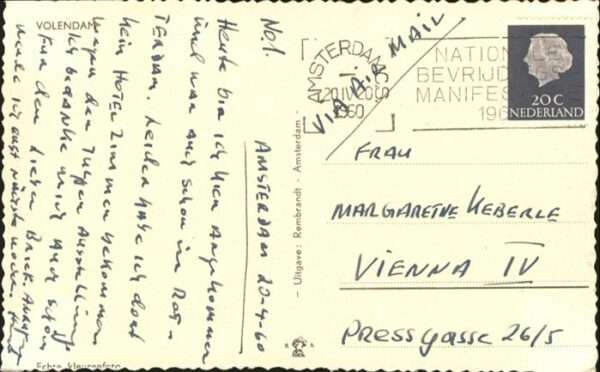 VOLENDAM
No 1. AMSTERDAM 20-4-60
Heute bin ich hier angekommen
und war auch schon in ROT-
TERDAM. Leider habe ich dort
kein HOTELZimmer bekommen
wegen den Tulpen Ausstellung
Ich bedanke mich auch schön
für den lieben Brief.
werde ich erst nächste
Echte
Uitgave: Rembrandt - Amsterdam -
AMSTERDAM
20.IV.2000
1960
VIA AIR MAIL
NATION
BEVRIJD
MANIFES
196
20 C
NEDERLAND
FRAU
MARGARETHE HEBERLE
VIENNA IV
PRESSgasse 26/5